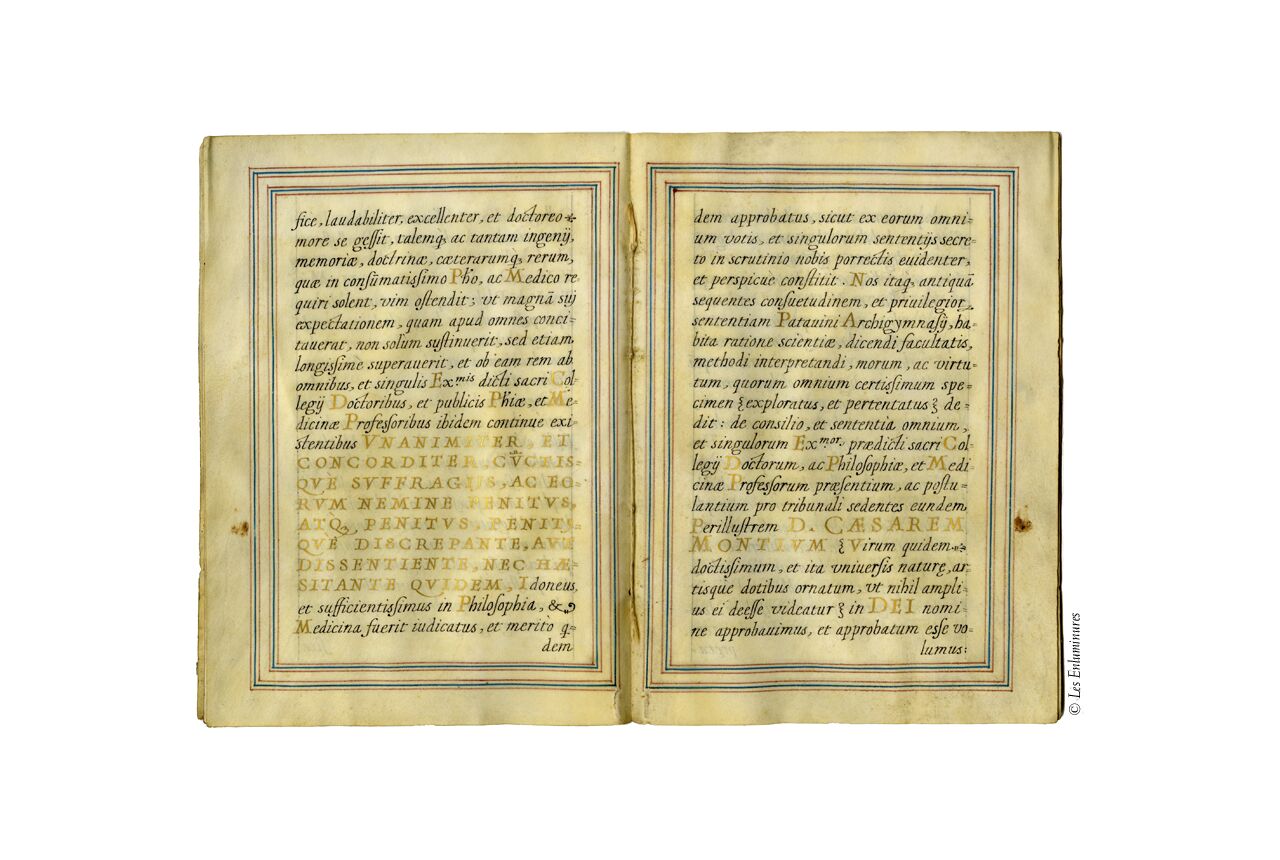 fice, laudabiliter, excellenter, et doctoreo
more se gessit, talemq; ac tantam ingenij,
memoriæ, doctrinæ, cæterarumq; rerum,
quæ in consumatissimo Pho, ac Medico re
quiri solent, vim ostendit; vt magnā sui
expectationem, quam apud omnes conci=
tauerat, non solùm sustinuerit, sed etiam
longissime superauerit, et ob eam rem ab
omnibus, et singulis Exmis dicti sacri Col=
legij Doctoribus, et publicis Phiæ, et Me=
dicinæ Professoribus ibidem continue exi=
stentibus VNANIMITER, ET
CONCORDITER, CŪCTIS=
QVE SVFFRAGIJS, AC EO=
RVM NEMINE PENITVS,
ATQ; PENITVS, PENITS=
QVE DISCREPANTE, AVT
DISSENTIENTE, NEC HÆ=
SITANTE QVIDEM, Idoneus,
et sufficientissimus in Philosophia, &
Medicina fuerit iudicatus, et meritò q=
dem
dem approbatus, sicut ex eorum omni=
um votis, et singulorum sententijs secre=
to in scrutinio nobis porrectis euidenter,
et perspicue constitit. Nos itaq; antiquā
sequentes consuetudinem, et priuilegior,
sententiam Patauini Archigymnasij, ha=
bita ratione scientiæ, dicendi facultatis,
methodi interpretandi, morum, ac virtu=
tum, quorum omnium certissimum spe=
cimen ξ exploratus, et pertentatus ξ de=
dit: de consilio, et sententia omnium,
et singulorum Exmor. prædicti sacri Col=
legij Doctorum, ac Philosophiæ, et Medi=
cinæ Professorum præsentium, ac postu=
lantium pro tribunali sedentes eundem
Perillustrem D. CÆSAREM
MONTIVM ξ Virum quidem
doctissimum, et ita vniuersis naturę, ar=
tisque dotibus ornatum, vt nihil ampli=
us ei deesse videatur ξ in DEI nomi=
ne approbauimus, et approbatum esse vo=
lumus:
© Les Enluminures